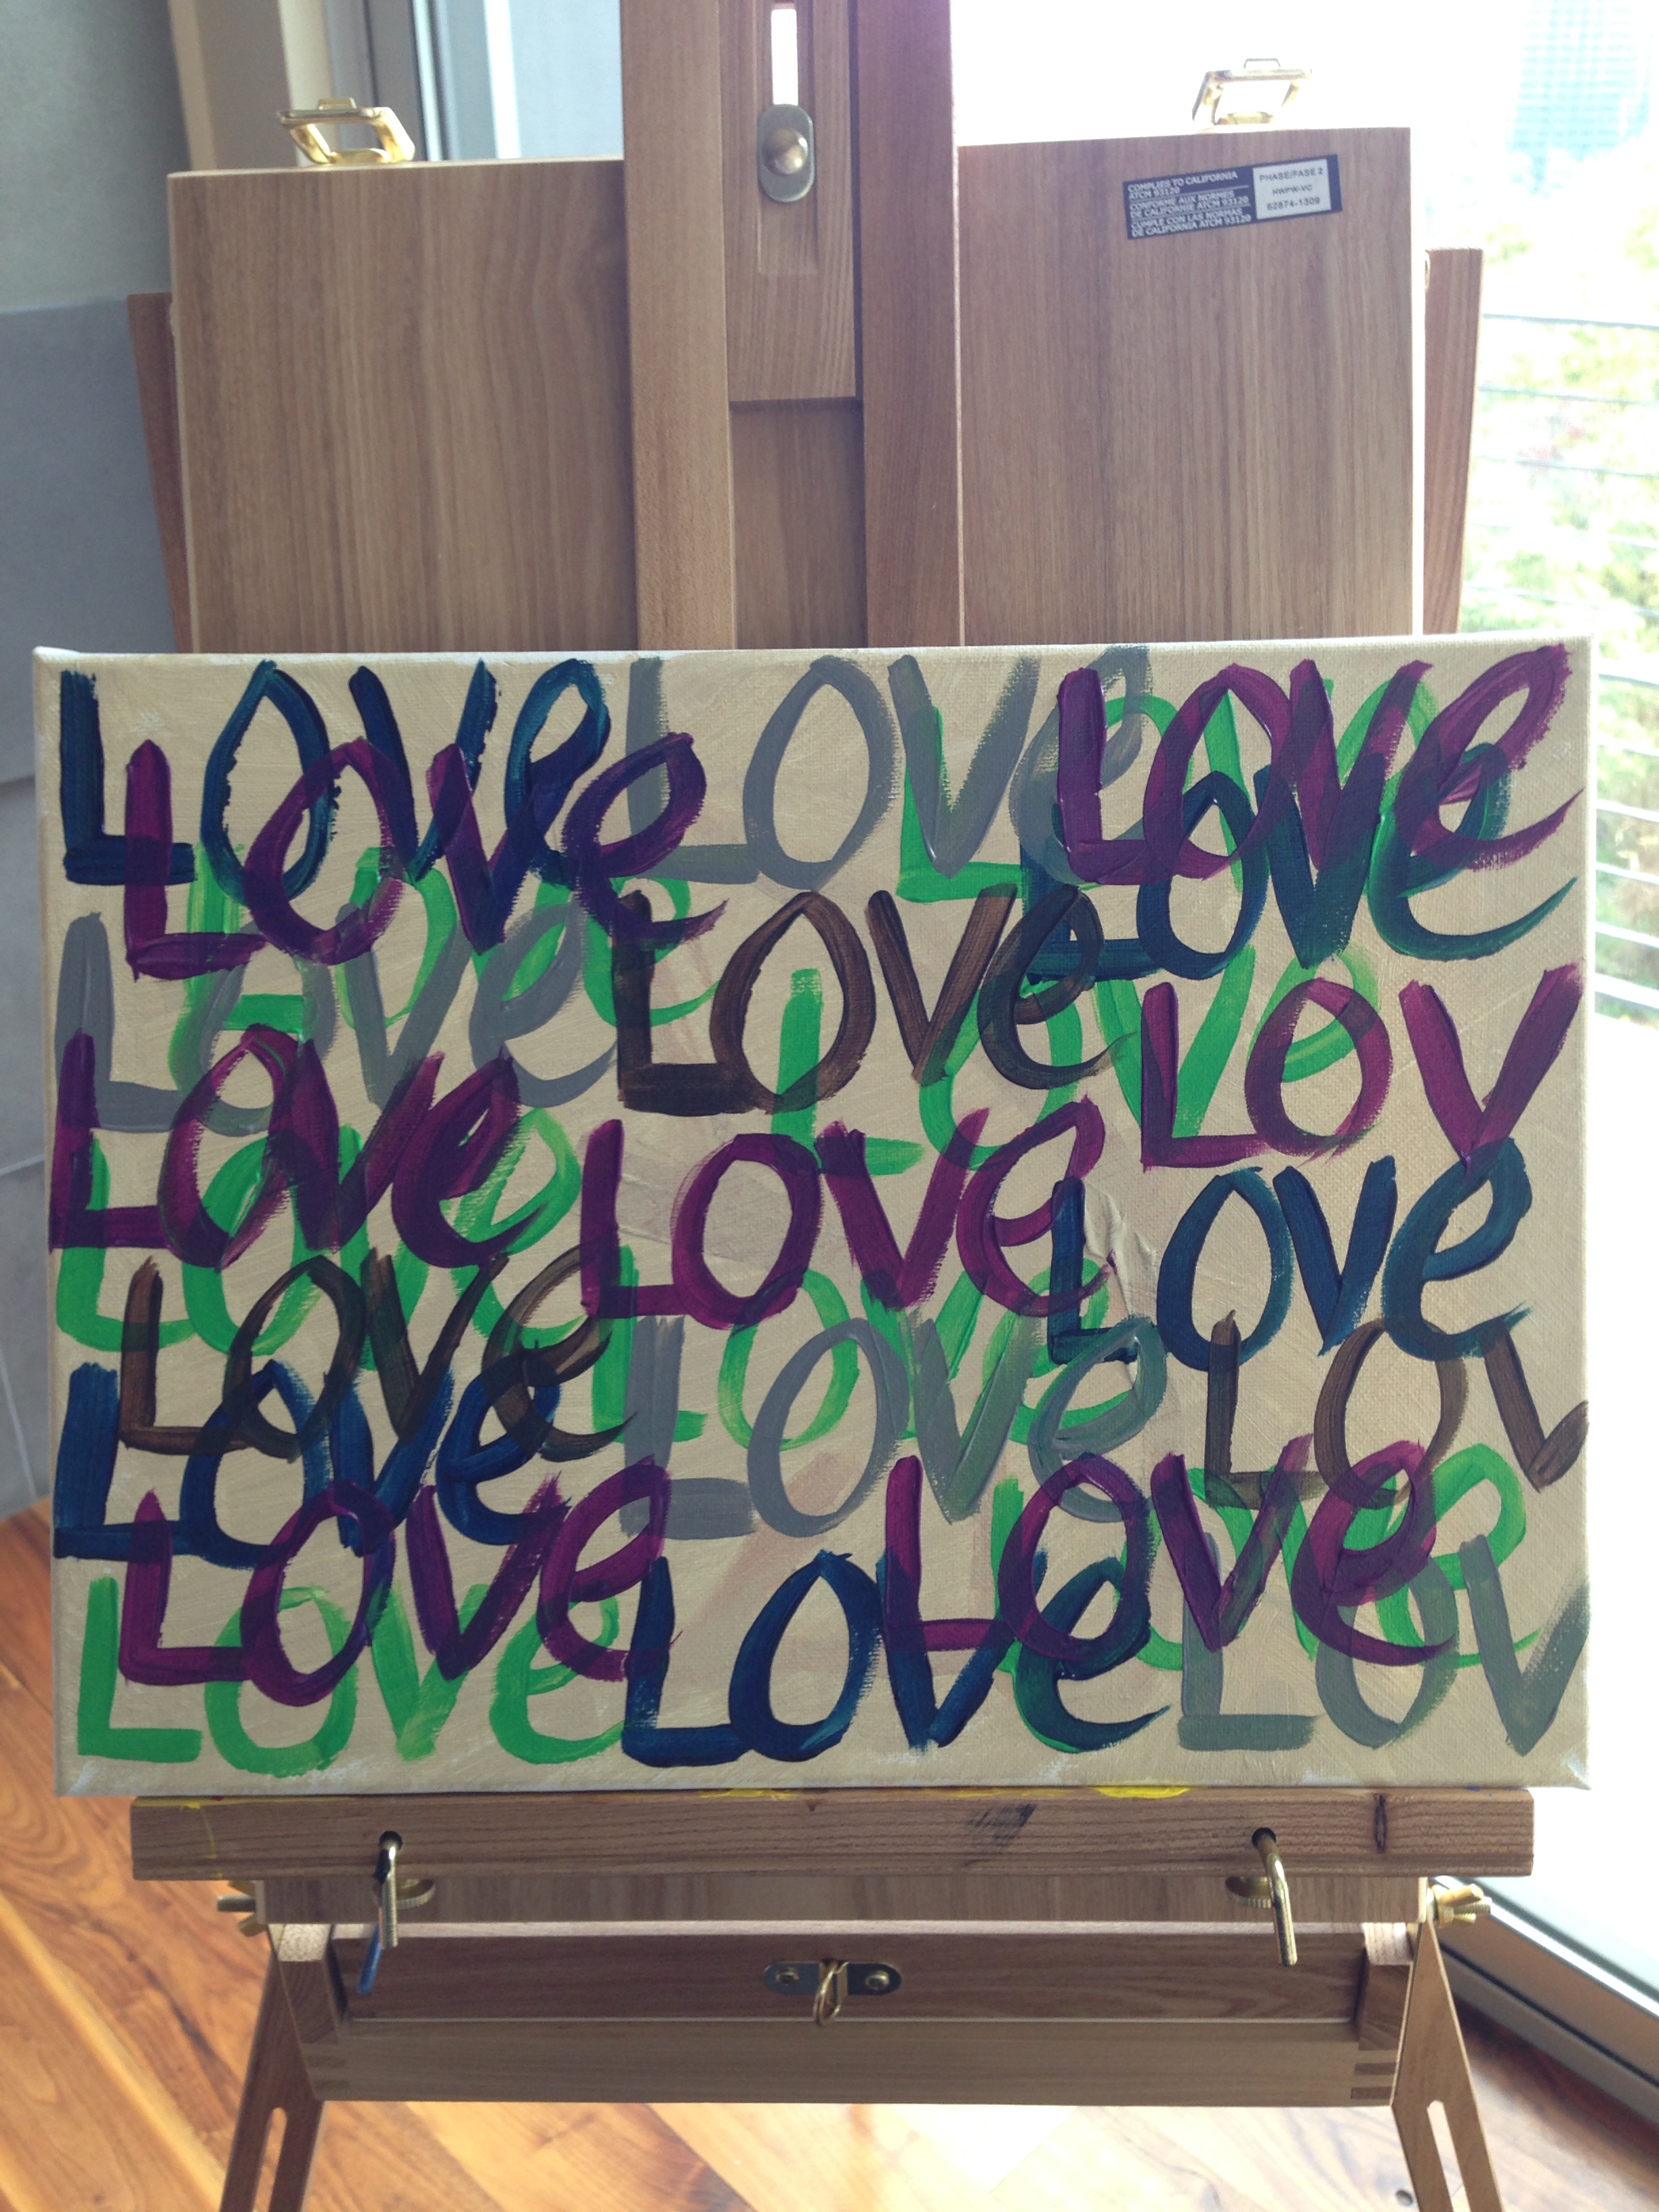 COMPLIES TO CALIFORNIA
ATCM 93120
CONFORME AUX NORMES
DE CALIFORNIE ATCM 93120
CUMPLE CON LAS NORMAS
DE CALIFORNIA ATCM 93120
PHASE/FASE 2
HWPW-VC
62874-1309
LOVe LOVe LOVe
LOVe LOVe LOVe
LOVe LOVe
LOVe LOVe LOV
LOVe LOVe LOVe
LOVe LOVe
LOVe LOVe LOV
LOVe LOVe LOVe
LOVe LOVe LOV